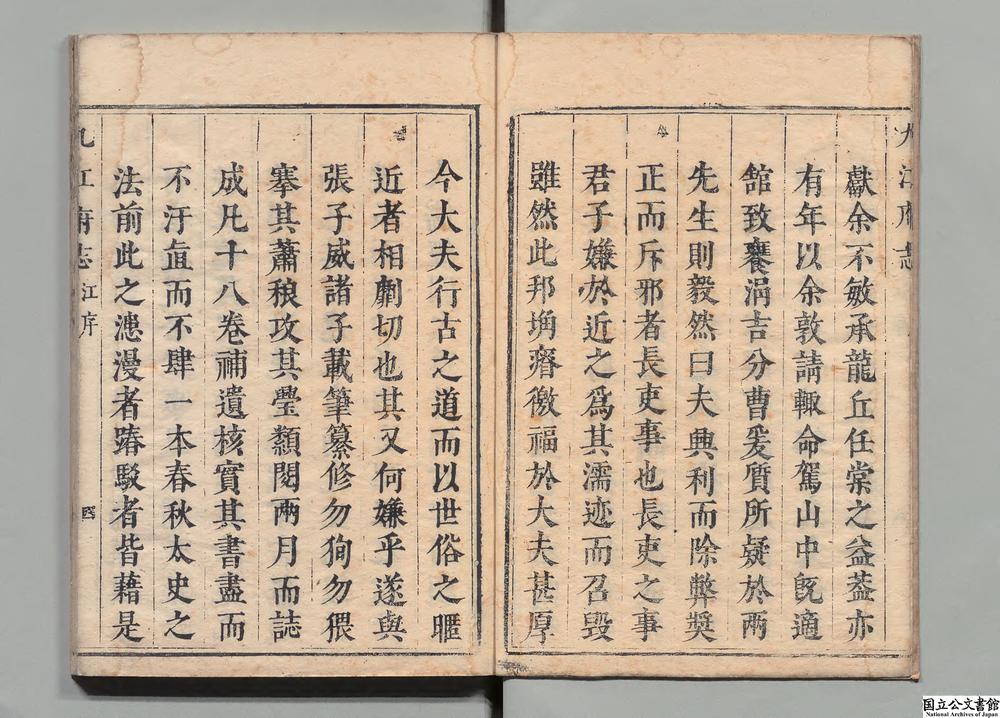 獻余不敏承龍丘任棠之益葢亦
有年以余敦請輙命駕山中旣適
舘致饔涓吉分曹爰質所疑於兩
先生則毅然曰夫興利而除弊奬
正而斥邪者長吏事也長吏之事
君子嫌於近之爲其濡迹而召毀
雖然此邦埆瘠徼福於大夫甚厚
今大夫行古之道而以世俗之暱
近者相劘切也其又何嫌乎遂與
張子威諸子載筆纂修勿狥勿猥
搴其蕭稂攻其璺纇閱兩月而誌
成凡十八卷補遺核實其書盡而
不汙直而不肆一本春秋太史之
法前此之漶漫者踳駁者皆藉是
九江府志
江序
四
国立公文書館
National Archives of Japan